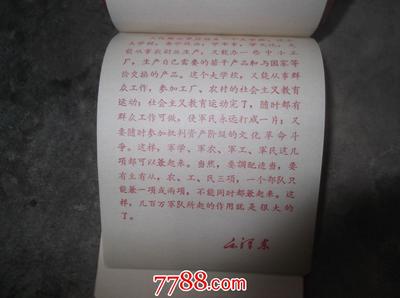 大学校，要学政治，学军事，学文化，又
能从事农副业生产，又能办一些中小工
厂，生产自己需要的若干产品和与国家等
价交换的产品。这个大学校，又能从事群
众工作，参加工厂、农村的社会主义教育
运动；社会主义教育运动完了，随时都有
群众工作可做，使军民永远打成一片；又
要随时参加批判资产阶级的文化革命斗
争。这样，军学、军农、军工、军民这几
项都可以兼起来。当然，要调配适当，要
有主有从，农、工、民三项，一个部队只
能兼一项或两项，不能同时都兼起来。这
样，几百万军队所起的作用就是很大的
了。
毛泽东
7788.com